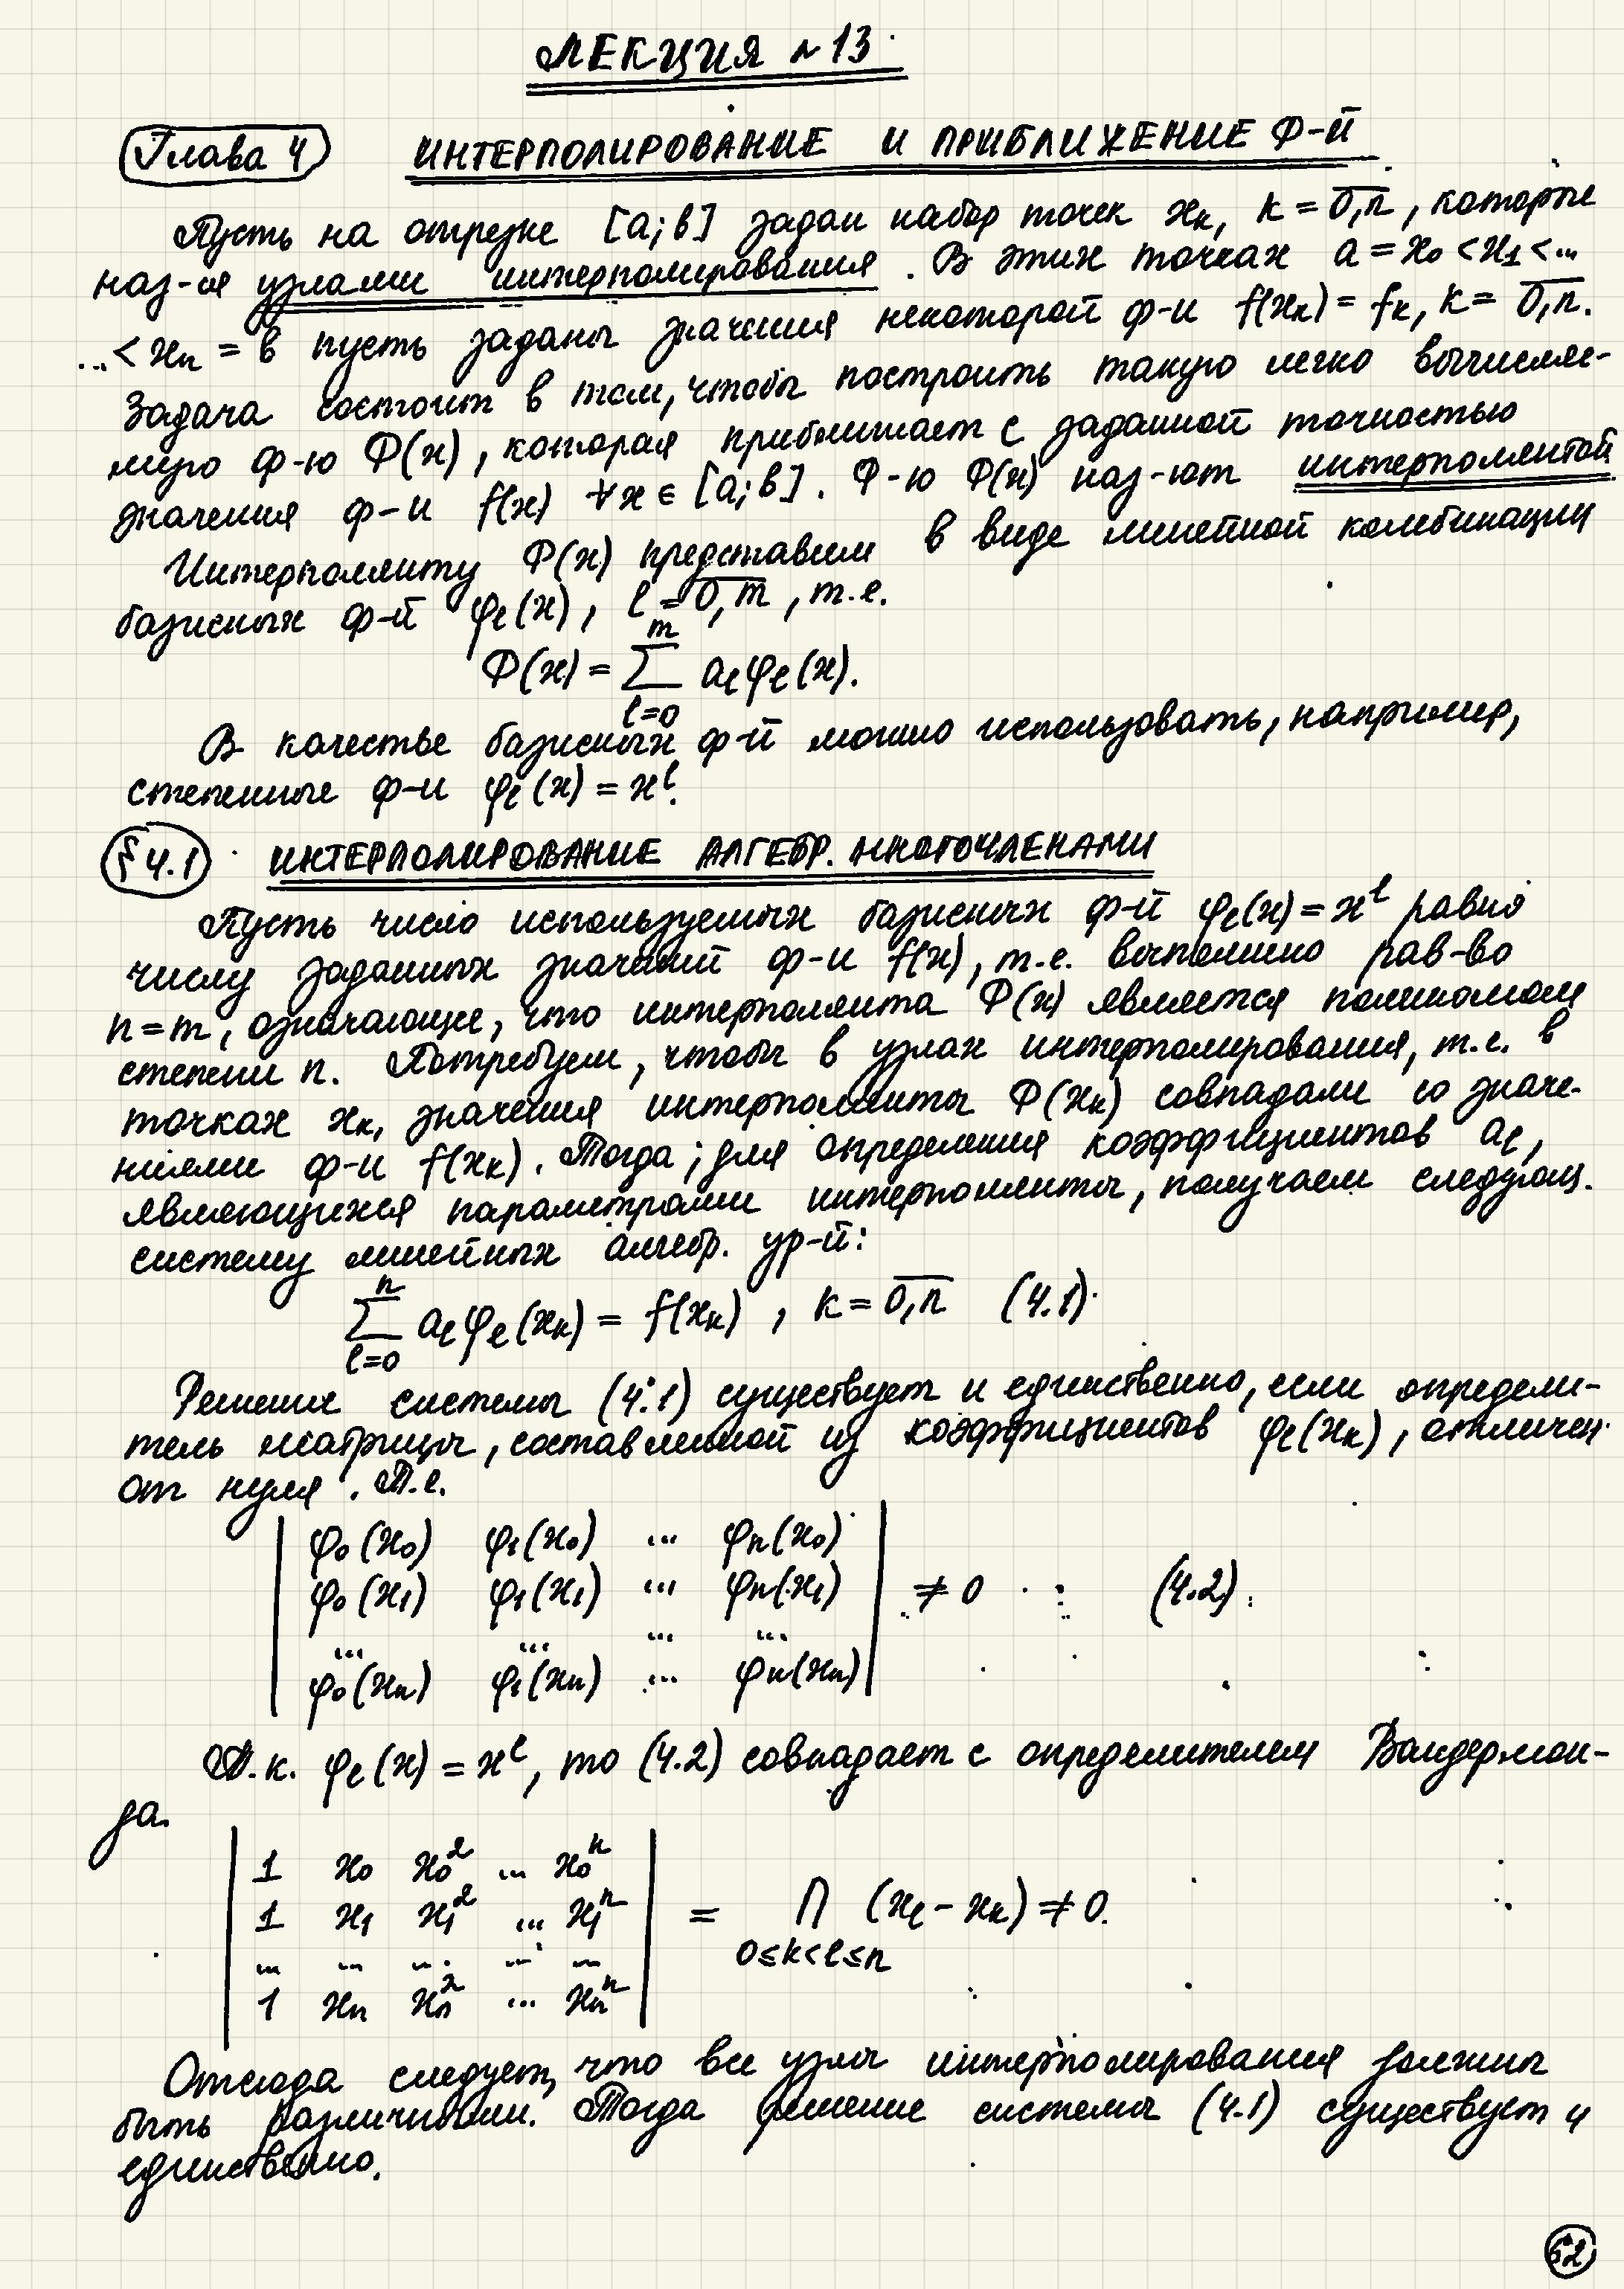 ЛЕКЦИЯ №13.
Глава 4 ИНТЕРПОЛИРОВАНИЕ И ПРИБЛИЖЕНИЕ Ф-Й
Пусть на отрезке [a;b] задан набор точек xₖ, k = 0,n̅, которые
наз-ся узлами интерполирования. В этих точках a = x₀ < x₁ < ...
... < xₙ = b пусть заданы значения некоторой ф-и f(xₖ) = fₖ, k = 0,n̅.
Задача состоит в том, чтобы построить такую легко вычисляе-
мую ф-ю Ф(x), которая приближает с заданной точностью
значения ф-и f(x) ∀x ∈ [a;b]. Ф-ю Ф(x) наз-ют интерполянтой.
Интерполянту Ф(x) представим в виде линейной комбинации
базисных ф-й φₗ(x), l = 0,m̅, т.е.
Ф(x) = ∑_{l=0}^{m} aₗφₗ(x).
В качестве базисных ф-й можно использовать, например,
степенные ф-и φₗ(x) = xˡ.
§ 4.1 ИНТЕРПОЛИРОВАНИЕ АЛГЕБР. МНОГОЧЛЕНАМИ
Пусть число используемых базисных ф-й φₗ(x) = xˡ равно
числу заданных значений ф-и f(x), т.е. выполнено рав-во
n = m, означающее, что интерполянта Ф(x) является полиномом
степени n. Потребуем, чтобы в узлах интерполирования, т.е. в
точках xₖ, значения интерполянты Ф(xₖ) совпадали со значе-
ниями ф-и f(xₖ). Тогда, для определения коэффициентов aₗ,
являющихся параметрами интерполянты, получаем следующ.
систему линейных алгебр. ур-й:
∑_{l=0}^{n} aₗφₗ(xₖ) = f(xₖ), k = 0,n̅ (4.1)
Решение системы (4.1) существует и единственно, если определи-
тель матрицы, составленной из коэффициентов φₗ(xₖ), отличен
от нуля. Т.е.
| φ₀(x₀) φ₁(x₀) ... φₙ(x₀) |
| φ₀(x₁) φ₁(x₁) ... φₙ(x₁) | ≠ 0 (4.2)
| ... ... ... ... |
| φ₀(xₙ) φ₁(xₙ) ... φₙ(xₙ) |
Т.к. φₗ(x) = xˡ, то (4.2) совпадает с определителем Вандермон-
да.
| 1 x₀ x₀² ... x₀ⁿ |
| 1 x₁ x₁² ... x₁ⁿ | = ∏_{0≤k<l≤n} (xₗ - xₖ) ≠ 0.
| ... ... ... ... ... |
| 1 xₙ xₙ² ... xₙⁿ |
Отсюда следует, что все узлы интерполирования должны
быть различными. Тогда решение системы (4.1) существует и
единственно.
62